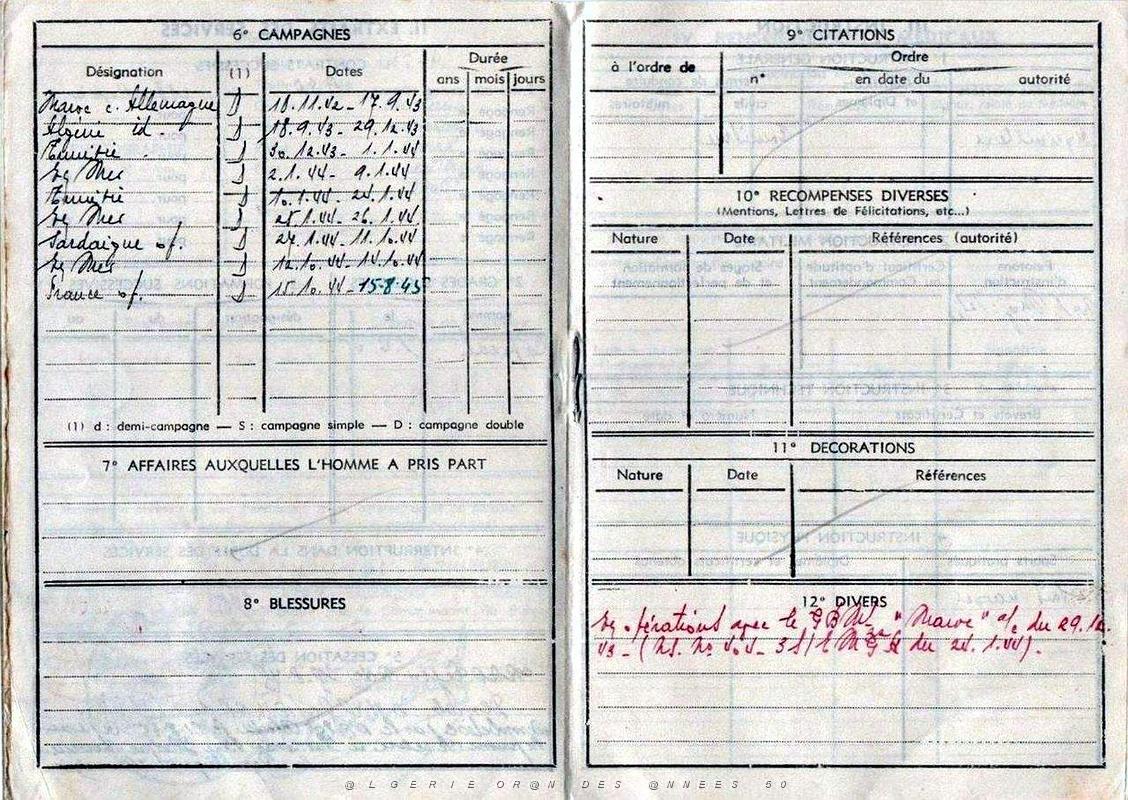 6° CAMPAGNES
Désignation (1) Dates Durée
ans mois jours
Maroc c. Allemagne D 18.11.42 - 17.9.43
Algérie id. D 18.9.43 - 29.12.43
Tunisie D 30.12.43 - 1.1.44
Mer D 2.1.44 - 9.1.44
Tunisie D 10.1.44 - 24.1.44
Mer D 25.1.44 - 26.1.44
Sardaigne op. D 27.1.44 - 11.10.44
Mer D 12.10.44 - 14.10.44
France op. D 15.10.44 - 15-8-45
(1) d : demi-campagne — S : campagne simple — D : campagne double
7° AFFAIRES AUXQUELLES L'HOMME A PRIS PART
8° BLESSURES
9° CITATIONS
à l'ordre de Ordre
n° en date du autorité
10° RECOMPENSES DIVERSES
(Mentions, Lettres de Félicitations, etc...)
Nature Date Références (autorité)
11° DECORATIONS
Nature Date Références
12° DIVERS
opérations avec le G B M "Maroc" a/c du 29.12.
43 - ( du 24.1.44).
@LGERIE OR@N DES @NNEES 50